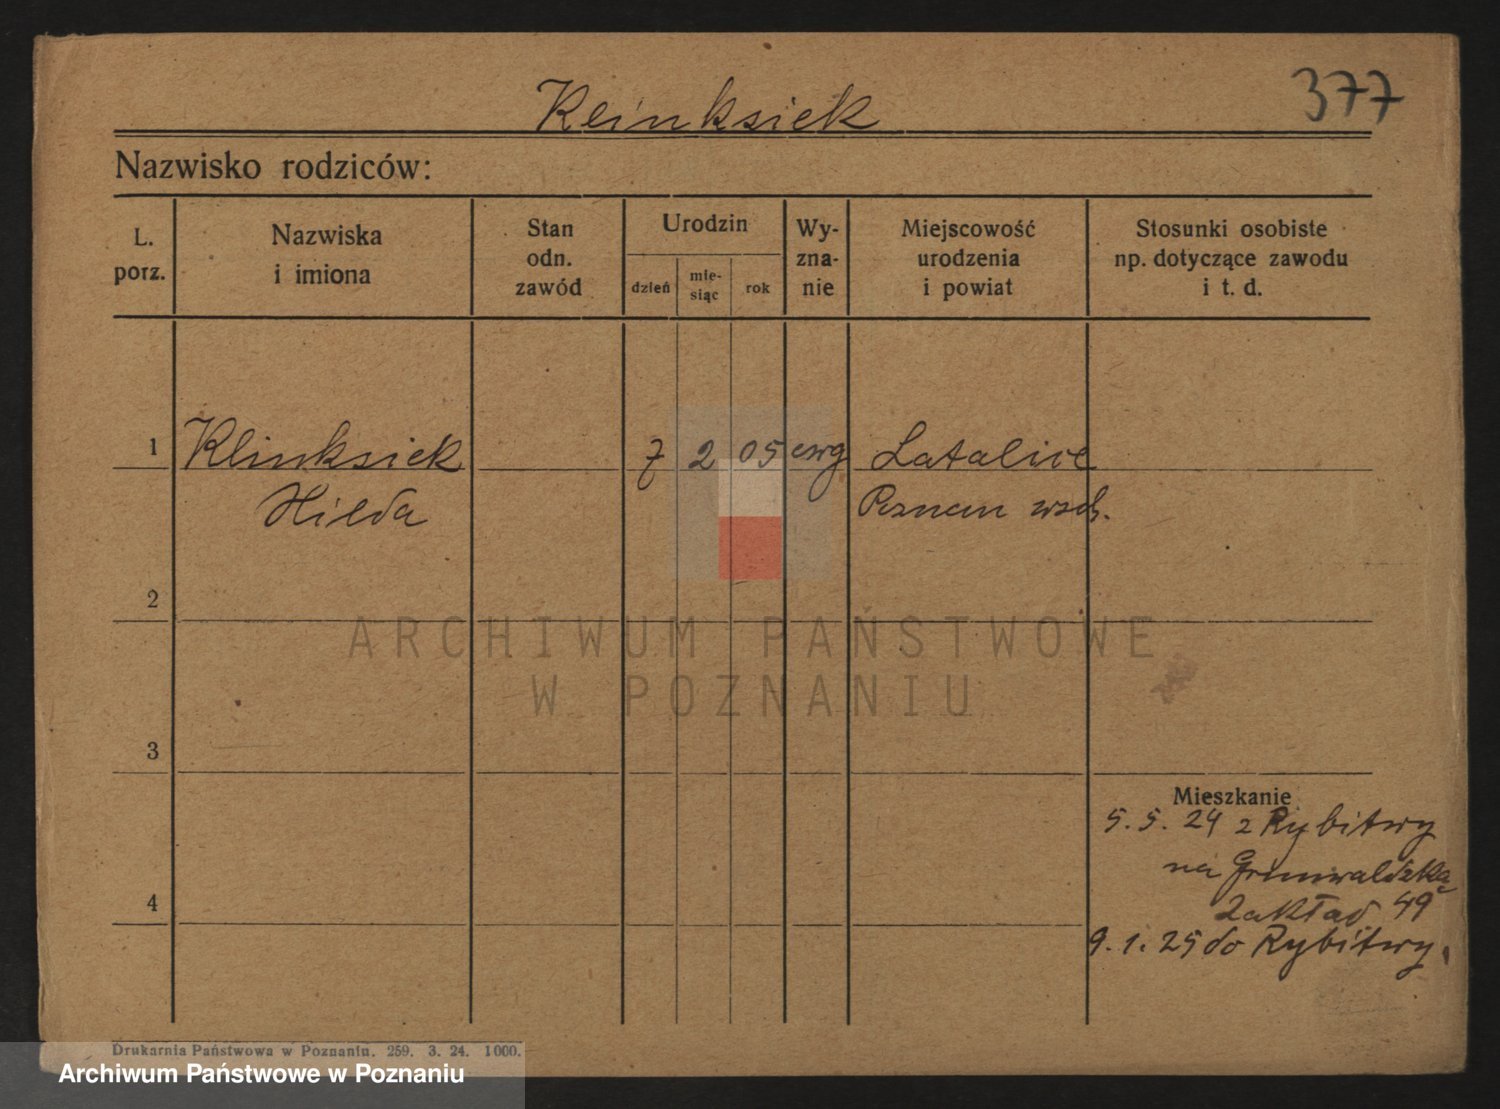 Kleinksiek
377
Nazwisko rodziców:
L. porz.
Nazwiska i imiona
Stan odn. zawód
Urodzin
dzień
mie- siąc
rok
Wy- zna- nie
Miejscowość urodzenia i powiat
Stosunki osobiste np. dotyczące zawodu i t. d.
1 Klinksiek 7 2 05 ewg Latalice
Hilda Poznan wsch.
2
ARCHIWUM PAŃSTWOWE
W POZNANIU
3
Mieszkanie
5. 5. 24 z Rybitwy
na Grunwaldzką
4
Zakład 49
9. 1. 25 do Rybitwy.
Drukarnia Państwowa w Poznaniu. 259. 3. 24. 1000.
Archiwum Państwowe w Poznaniu